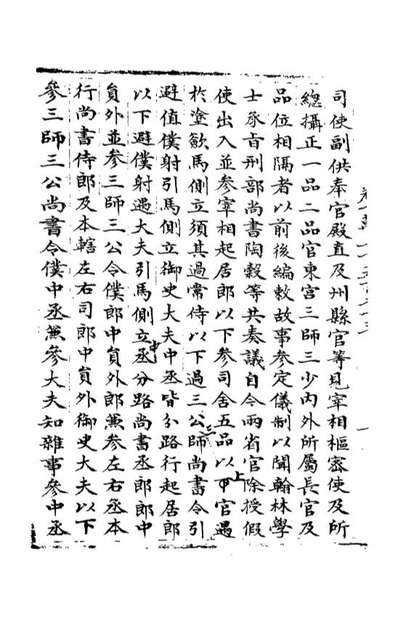 司使副供奉官殿直及州縣官等見宰相樞密使及所
總攝正一品二品官東宮三師三少內外所屬長官及
品位相隔者以前後編敕故事參定儀制以聞翰林學
士承旨刑部尚書陶穀等共奏議自今兩省官除授假
使出入並參宰相起居郎以下參同舍五品以上官遇
於塗歛馬側立須其過常侍以下遇三公三師尚書令引
避值僕射引馬側立御史大夫中丞皆分路行起居郎
以下避僕射遇大夫引馬側立中丞分路尚書丞郎郎中
員外並參三師三公令僕郎中員外郎兼參左右丞本
行尚書侍郎及本轄左右司郎中員外御史大夫以下
參三師三公尚書令僕中丞兼參大夫知雜事參中丞